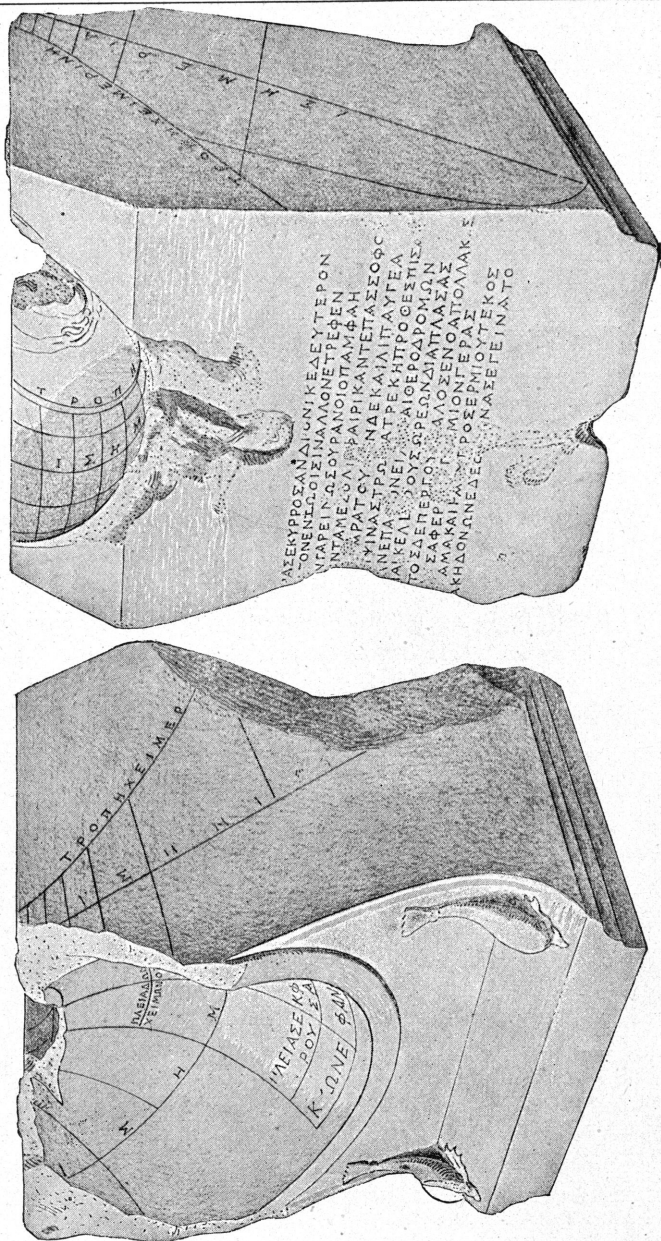 ΤΡΟΠΗΧΕΙΜΕΡΙΝΗ
ΙΣΗΜΕΡΙΑ
ΤΡΟΠΗ
ΙΣΗΜ
ΑΣΕΚΥΡΡΟΣΑΝΔΙΟΝΙΚΕΔΕΥΤΕΡΟΝ
ΟΝΕΝΖΩΟΙΣΙΝΑΛΛΟΝΕΤΡΕΦΕΝ
ΝΓΑΡΕΙΝ ΩΣΟΥΡΑΝΟΙΟΠΑΜΦΑΗ
ΕΝΤΑΜΕ ΟΛ ΑΙΡΙΚΑΝΤΕΠΑΣΣΟΦΟ
ΜΡΑΤΟΥ ΝΔΕΚΑΙΛΙΠΑΥΓΕΑ
ΥΙΝΑΣΤΡΩ ΑΤΡΕΚΗΠΡΟΘΕΣΠΙΣ
ΑΝΕΠΑ ΟΝΕΙ ΑΙΘΕΡΟΔΡΟΜΩΝ
ΑΙΚΕΛΙ ΟΥΣΩΡΕΩΝΔΙΑΠΛΑΣΑΣ
ΤΟΣΔΕΠΕΡΓΟ ΑΛΟΣΕΝΟΑΠΟΛΛΑΚ Σ
ΣΑΦΕΡ ΜΙΟΝΓΕΡΑΣ
ΑΜΑΚΑΙΡΑ ΡΟΣΕΡΜΙΟΥΤΕΚΟΣ
ΑΚΗΔΟΝΩΝΕΔΕΣ ΝΑΣΕΓΕΙΝΑΤΟ
ΤΡΟΠΗΧΕΙΜΕΡ
ΙΣΗΜ
ΠΛΕΙΑΔΩΝ
ΧΕΙΜΩΝΟ
ΙΣΗΜ
ΠΛΕΙΑΣΕΚΦ
ΡΟΥ ΣΑ
Κ ΩΝΕ ΦΑΝ